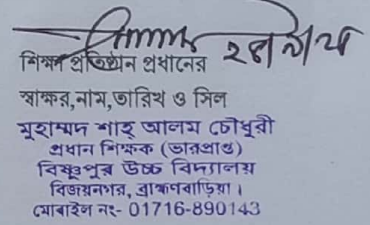 শিক্ষা প্রতিষ্ঠান প্রধানের
স্বাক্ষর,নাম,তারিখ ও সিল
মুহাম্মদ শাহ্ আলম চৌধুরী
প্রধান শিক্ষক (ভারপ্রাপ্ত)
বিষ্ণুপুর উচ্চ বিদ্যালয়
বিজয়নগর, ব্রাহ্মণবাড়িয়া।
মোবাইল নং- 01716-890143